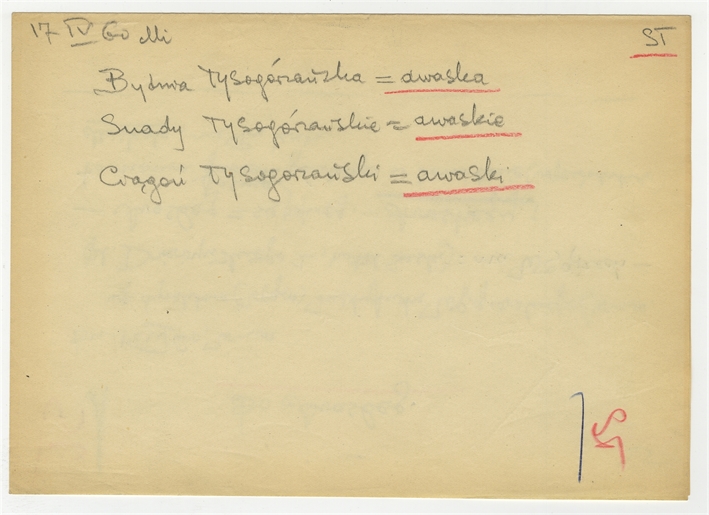 17 IV 60 Mi
ST
Bydnia Tysogórzańska = awaska
Snady Tysogórzańskie = awaskie
Ciągoń Tysogorzański = awaski